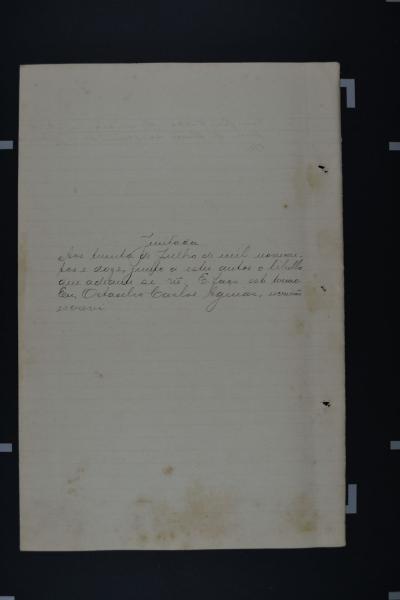 Juntada
Aos trinta de Julho de mil novecen-
tos e doze, junto a estes autos o libello
que adiante se vê. E faço este termo
Eu, Octavilio Carlos, escrivão
escrevi